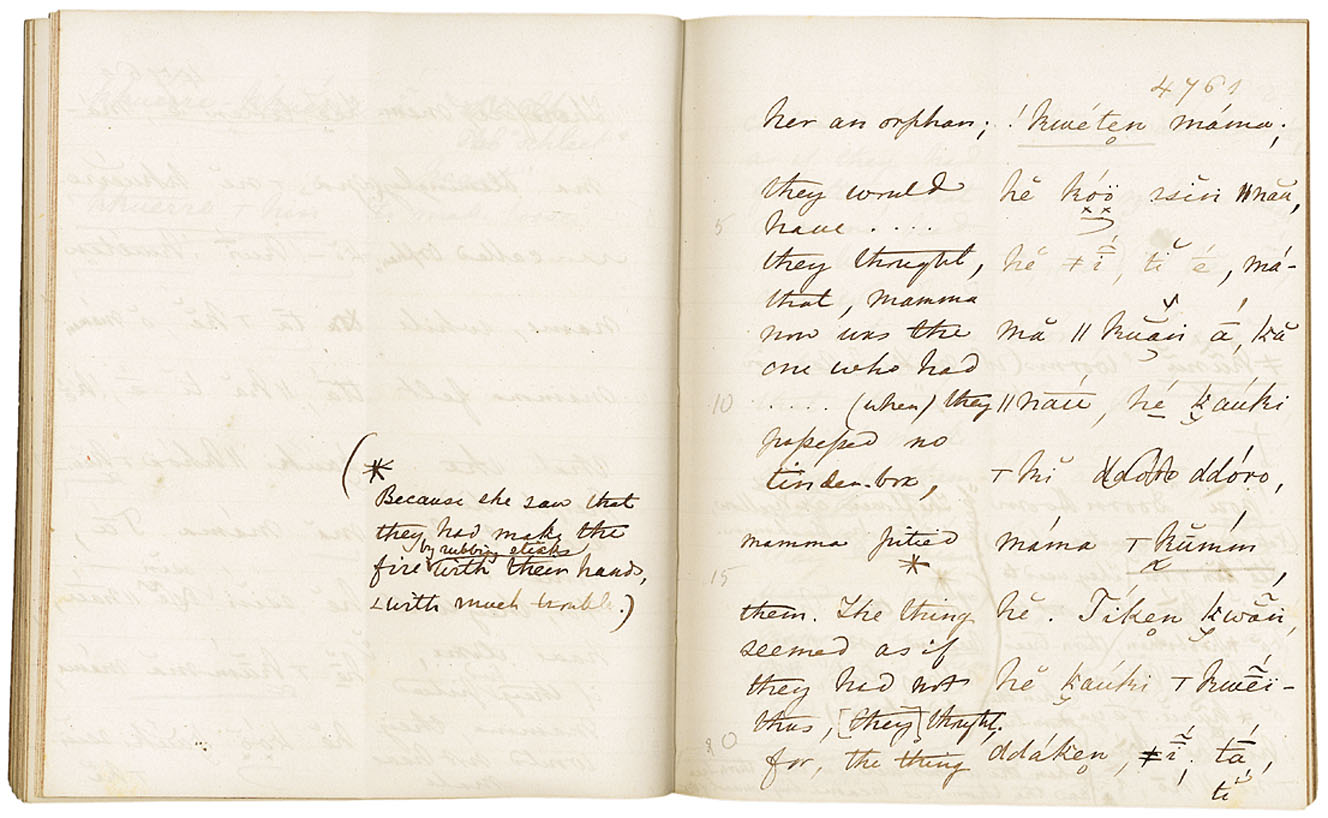 (*
Because she saw that
they had make the
by rubbing sticks
fire with their hands,
with much trouble.)
4761
her an orphan; !kwéten máma;
they would hĕ kóö ssĭn ǁnău,
5 have ....
they thought, hĕ ǂĭ, tĭ é, má-
that, mamma
now was the mă ǁkŭăn ā, kă
one who had
10 ..... (when) they ǁnáu, hé káuki
possessed no
tinder-box, ⊤hĭ ddóro,
mamma pitied máma ⊤kŭmm
* 
15
them. The thing hĕ. Tíken kwăn,
seemed as if
they had not hĕ káuki ⊤kwĕï-
thus, [they] thought.
20 for, the thing ddáken, ǂĭ. tá,
tĭ